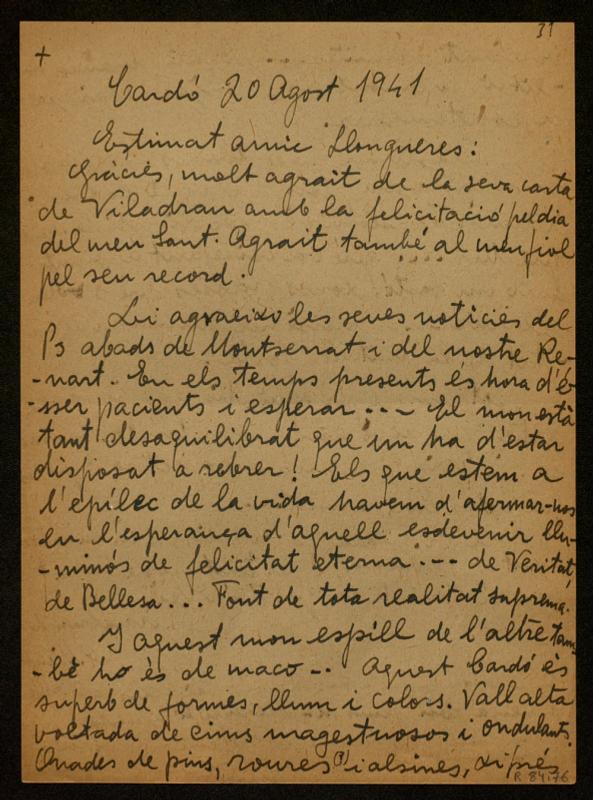 31
+
Cardó 20 Agost 1941
Estimat amic Llongueres:
Gràcies, molt agrait de la seva carta
de Viladrau amb la felicitació pel dia
del meu Sant. Agrait també al meu fiol
pel seu record.
Li agraeixo les seves noticies del
Ps abads de Montserrat i del nostre Re-
-nart. En els temps presents és hora d'é-
-sser pacients i esperar... - El mon està
tant desequilibrat que un ha d'estar
disposat a rebrer! Els que estem a
l'epílec de la vida havem d'afermar-nos
en l'esperança d'aquell esdevenir llu-
-minós de felicitat eterna. -- de Veritat,
de Bellesa... Font de tota realitat suprema.
I aquest mon espill de l'altre tam-
-bé ho és de maco -. Aquest Cardó és
superb de formes, llum i colors. Vall alta
voltada de cims magestuosos i ondulants.
Onades de pins, roures (?) i alsines, xiprés
R. 84176